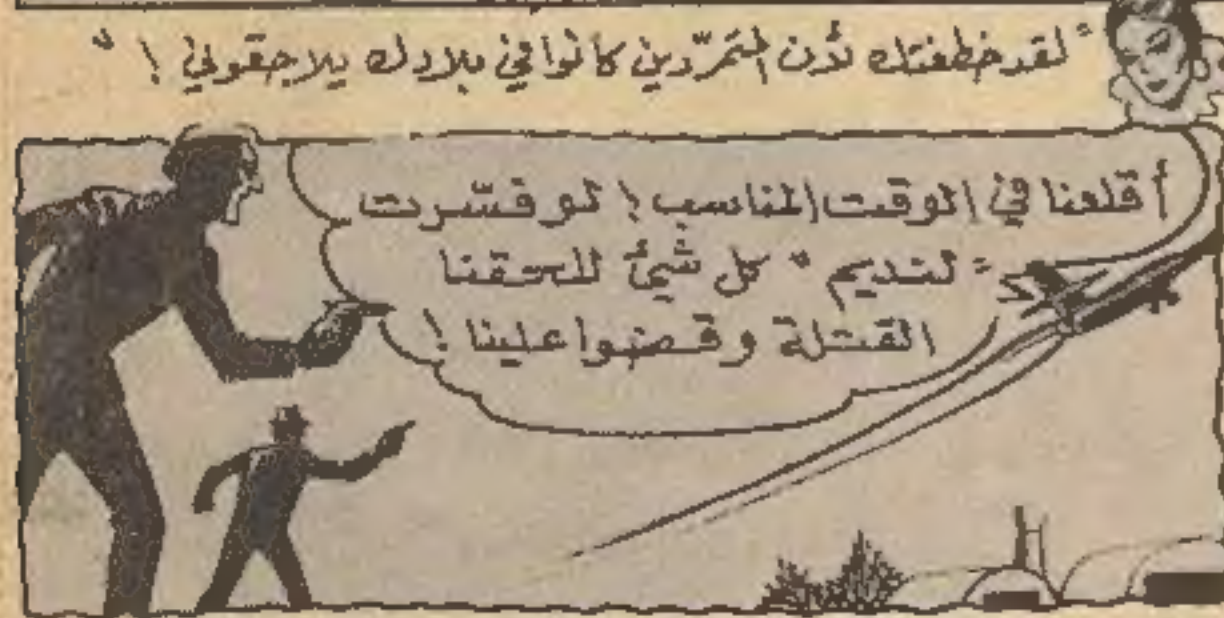 "لقد خطفتك لأن المتمرّدين كانوا في بلادك يلاحقوني ! "
أقلعنا في الوقت المناسب ! لو فسّرت
" لنديم " كل شيئ للحقنا
القتلة وقضوا علينا !